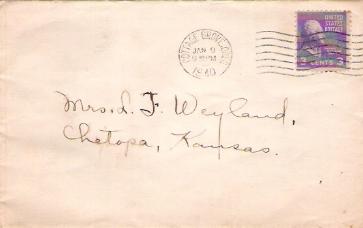 COTTAGE GROVE, ORE.
JAN 9
1940
UNITED
STATES
POSTAGE
3 CENTS 3
Mrs. L. F. Weyland,
Chetopa, Kansas.